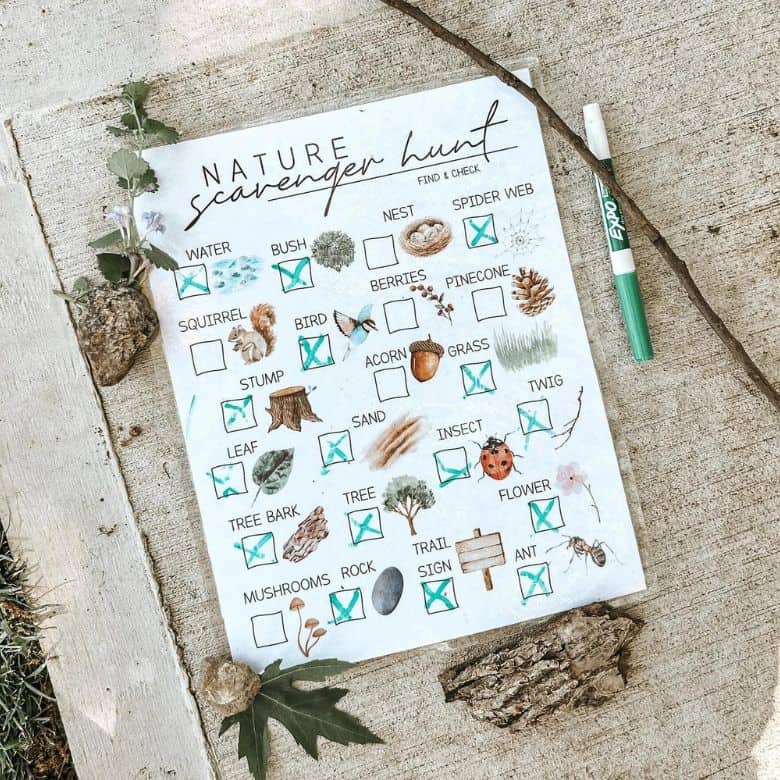 NATURE
scavenger hunt
FIND & CHECK
WATER
BUSH
NEST
SPIDER WEB
SQUIRREL
BIRD
BERRIES
PINECONE
STUMP
ACORN
GRASS
LEAF
SAND
INSECT
TWIG
TREE BARK
TREE
FLOWER
MUSHROOMS
ROCK
TRAIL
SIGN
ANT
EXPO